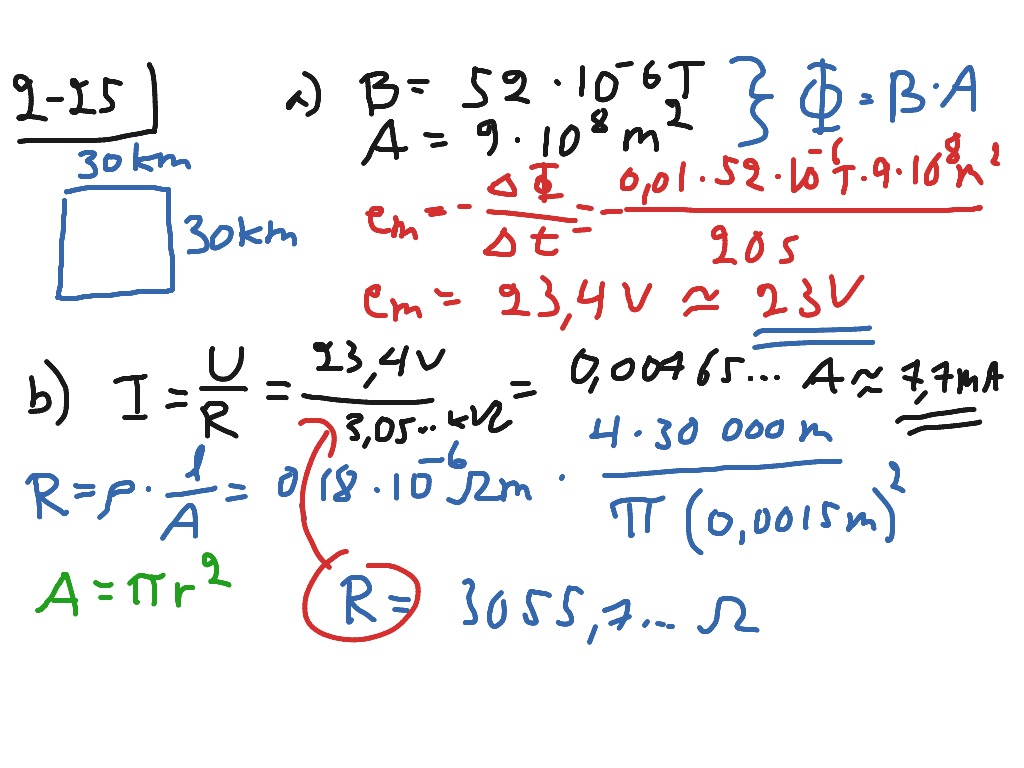 2-25
a) B = 52 · 10⁻⁶ T } Φ = B · A
A = 9 · 10⁸ m²
30 km
30 km
em = - ΔΦ/Δt = - 0,01 · 52 · 10⁻⁶ T · 9 · 10⁸ m² / 20 s
em = 23,4 V ≈ 23 V
b) I = U/R = 23,4 V / 3,05.. kΩ = 0,00765... A ≈ 7,7 mA
R = ρ · l/A = 0,18 · 10⁻⁶ Ωm · 4 · 30 000 m / π (0,0015 m)²
A = πr²
R = 3055,7... Ω